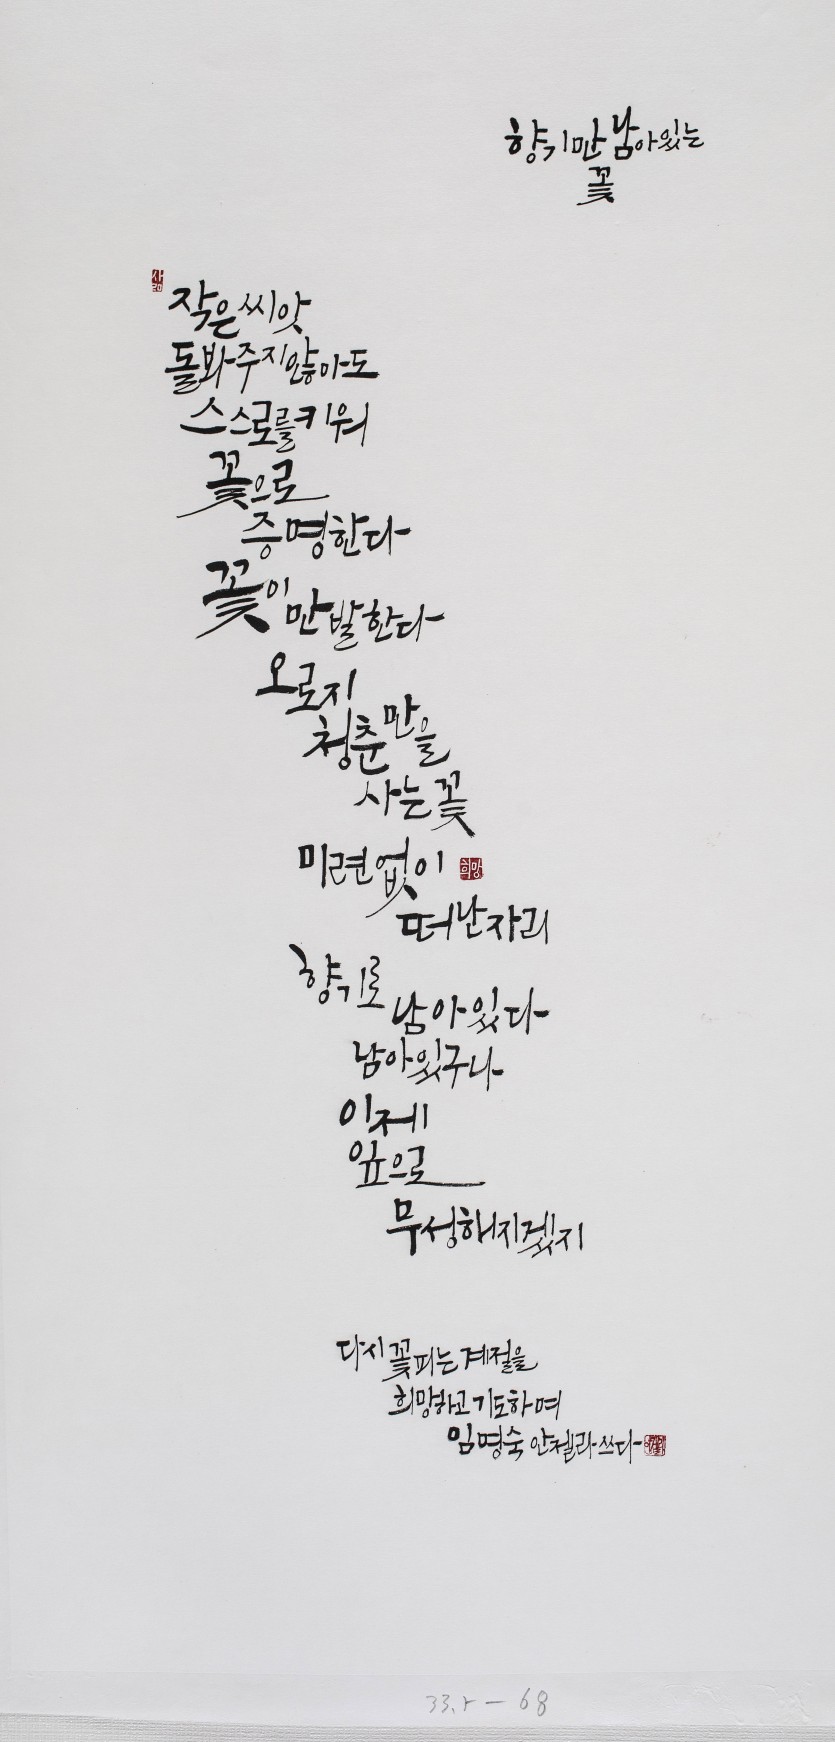 향기만 남아있는
꽃
사랑
작은 씨앗
돌봐주지 않아도
스스로를 키워
꽃으로
증명한다
꽃이
만발한다
오로지
청춘만을
사는 꽃
미련없이
희망
떠난 자리
향기로
남아있다
남아있구나
이제
잎으로
무성해지겠지
다시 꽃피는 계절을
희망하고 기도하며
임명숙 안젤라 쓰다